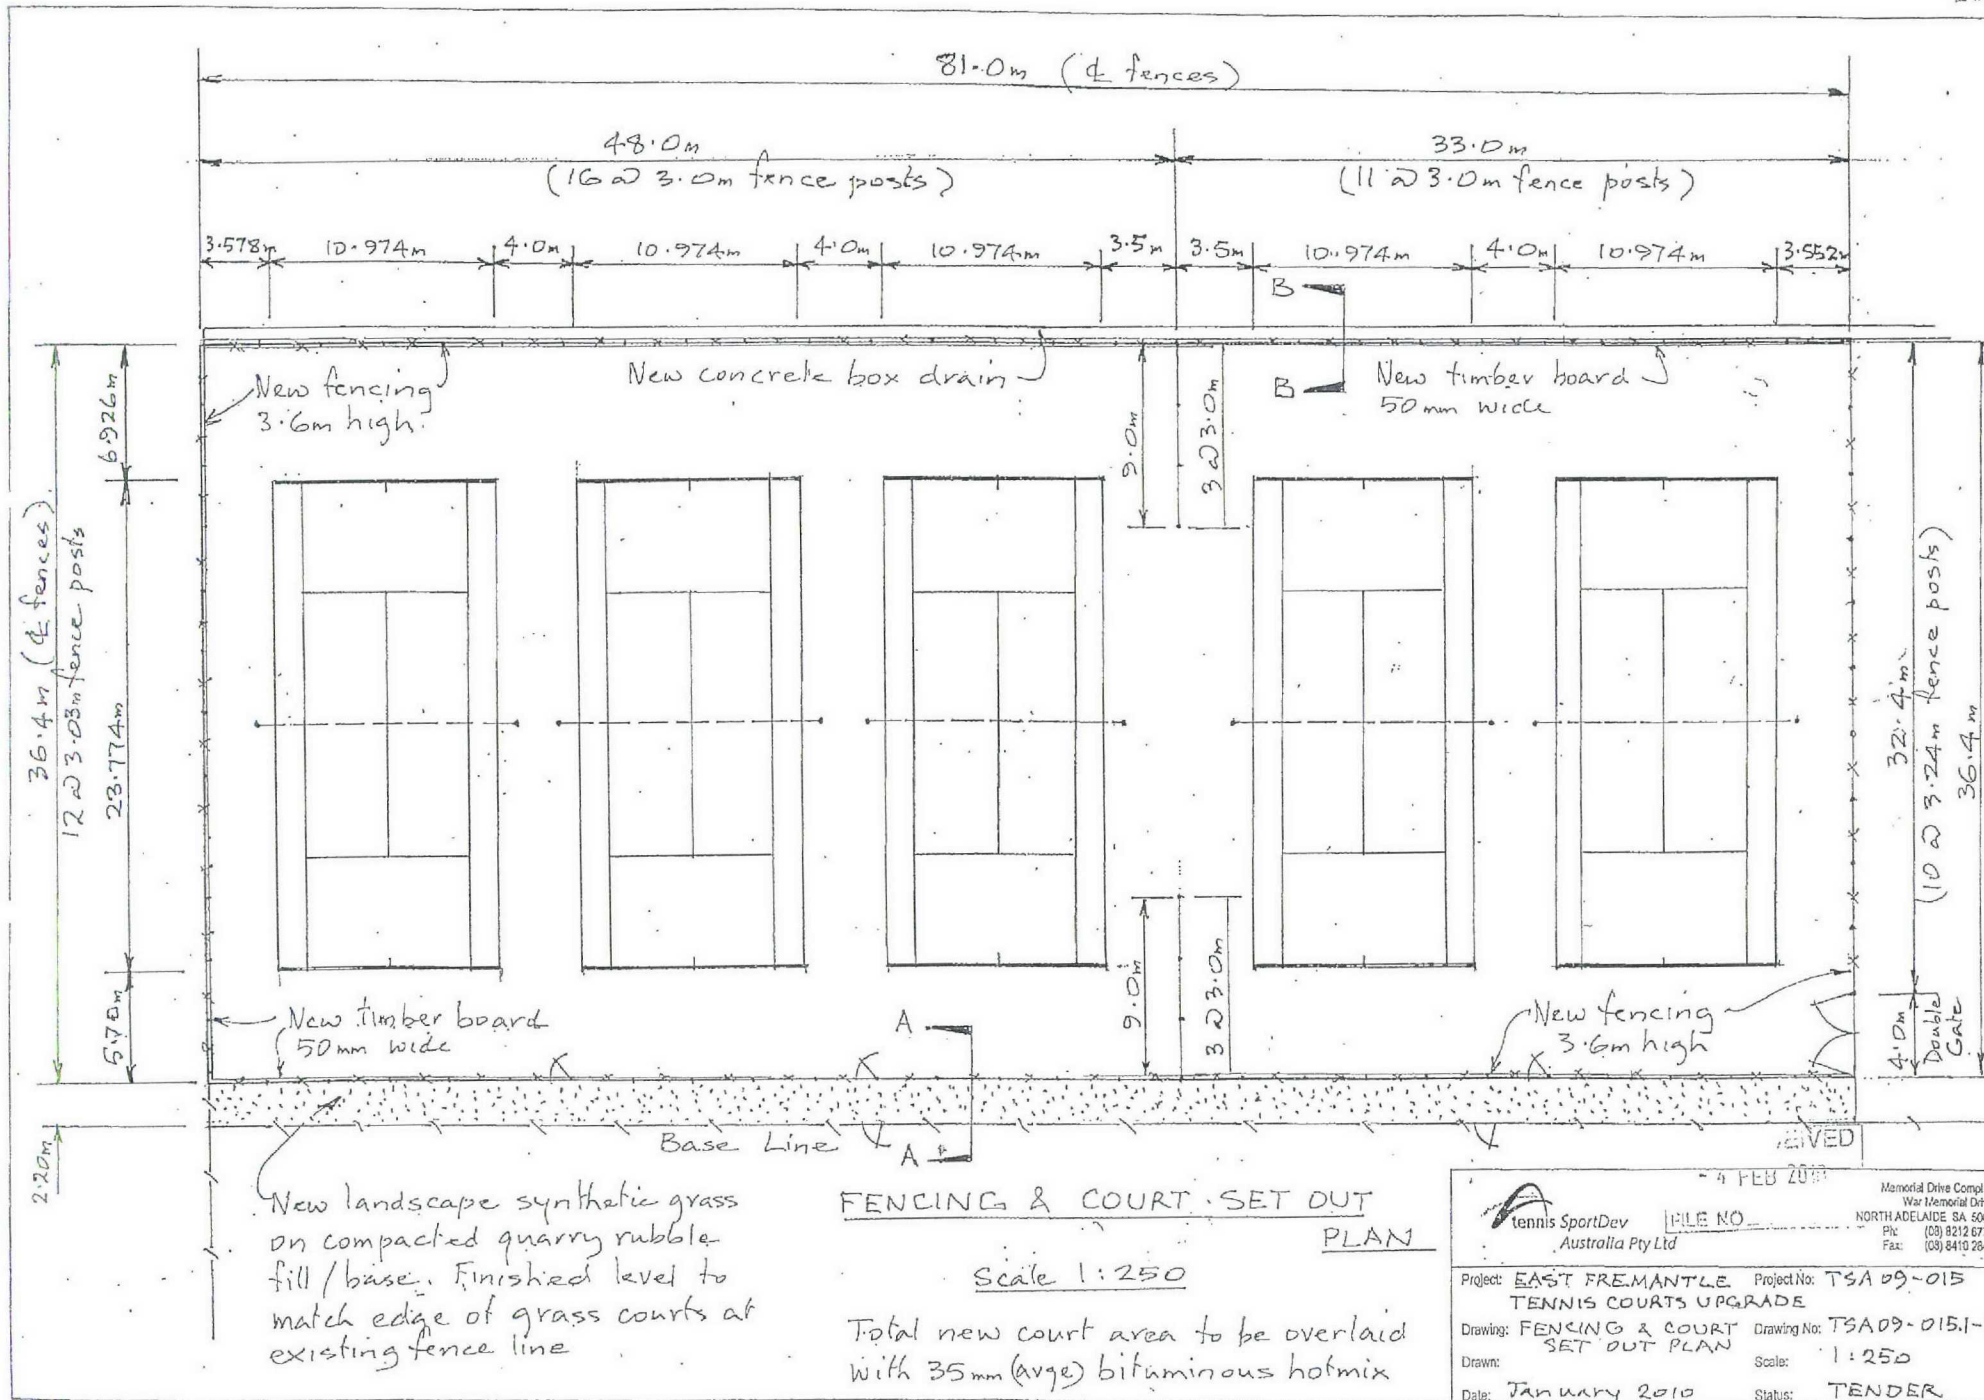 81.0m (℄ fences)
48.0m
(16 @ 3.0m fence posts)
33.0m
(11 @ 3.0m fence posts)
3.578m 10.974m 4.0m 10.974m 4.0m 10.974m 3.5m 3.5m 10.974m 4.0m 10.974m 3.552m
B
B
New fencing
3.6m high.
New concrete box drain
New timber board
50mm wide
36.4m (℄ fences)
12 @ 3.03m fence posts
6.926m
23.774m
5.70m
2.20m
9.0m
3 @ 3.0m
9.0m
3 @ 3.0m
32.4m
(10 @ 3.24m fence posts)
36.4m
4.0m
Double
Gate
New timber board
50mm wide
A
A
New fencing
3.6m high
Base Line
New landscape synthetic grass
on compacted quarry rubble
fill / base. Finished level to
match edge of grass courts at
existing fence line
FENCING & COURT SET OUT
PLAN
Scale 1:250
Total new court area to be overlaid
with 35mm (avge) bituminous hotmix
EIVED
- 4 FEB
FILE NO
tennis SportDev
Australia Pty Ltd
Memorial Drive Compl
War Memorial Dri
NORTH ADELAIDE SA 50
Ph: (08) 8212 67
Fax: (08) 8410 28
Project: EAST FREMANTLE Project No: TSA 09-015
TENNIS COURTS UPGRADE
Drawing: FENCING & COURT Drawing No: TSA09-015.1-
SET OUT PLAN
Drawn: Scale: 1:250
Date: January 2010 Status: TENDER